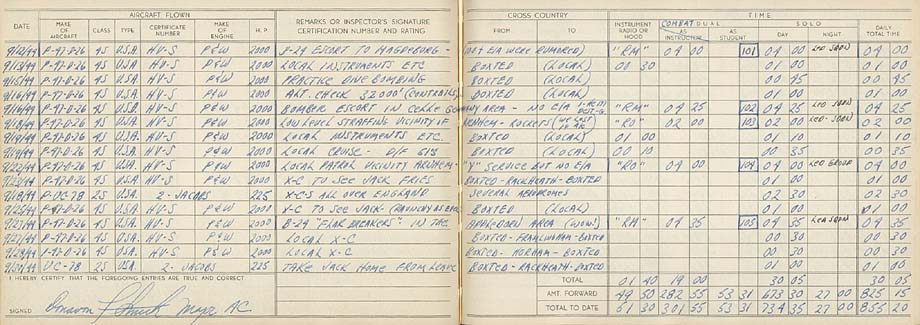 AIRCRAFT FLOWN
DATE MAKE OF AIRCRAFT CLASS TYPE CERTIFICATE NUMBER MAKE OF ENGINE H. P. REMARKS OR INSPECTOR'S SIGNATURE CERTIFICATION NUMBER AND RATING
CROSS COUNTRY TIME
FROM TO INSTRUMENT RADIO OR HOOD COMBAT DUAL AS INSTRUCTOR AS STUDENT SOLO DAY NIGHT DAILY TOTAL TIME
9/12/44 P-47-D-26 4S U.S.A. HV-S P&W 2000 B-24 ESCORT TO MAGDEBURG - "RM" 04 00 101 04 00 LED SQDN 04 00
9/13/44 P-47-D-26 4S USA HV-S P&W 2000 LOCAL INSTRUMENTS ETC BOXTED (LOCAL) 00 30 01 00 01 00
9/15/44 P-47-D-26 4S U.S.A. HV-S P&W 2000 PRACTICE DIVE BOMBING BOXTED (LOCAL) 00 45 00 45
9/16/44 P-47-D-26 4S U.S.A. HV-S P&W 2000 ALT. CHECK 32000' (CONTRAILS) BOXTED (LOCAL) 01 00 01 00
P-47-D-26 4S USA HV-S P&W 2000 BOMBER ESCORT IN CELLE GERMANY AREA - NO E/A "RM" 04 25 102 04 25 LED SQDN 04 25
9/18/44 P-47-D-26 4S U.S.A. HV-S P&W 2000 LOW LEVEL STRAFFING VICINITY OF ARNHEM - ROCKETS (WE LOST "RO" 02 00 103 02 00 LED SQDN 02 00
9/19/44 P-47-D-26 4S USA HV-S P&W 2000 LOCAL INSTRUMENTS ETC. BOXTED (LOCAL) 01 00 01 10 01 10
P-47-D-26 4S USA. HV-S P&W 2000 LOCAL BOXTED (LOCAL) 00 10 00 35 00 35
9/22/44 P-47-D-26 4S U.S.A. HV-S P&W 2000 LOCAL PATROL VICINITY ARNHEM - "Y" SERVICE BUT NO E/A "RO" 04 00 104 04 00 LED GROUP 04 00
P-47-D-26 4S U.S.A. HV-S P&W 2000 X-C TO SEE JACK FRIES BOXTED - RACKHEATH - BOXTED 01 00 01 00
UC-78 2S U.S.A. 2-JACOBS 225 X-C'S ALL OVER ENGLAND SEVERAL AERODROMES 02 30 02 30
9/25/44 P-47-D-26 4S USA HV-S P&W 2000 X-C TO SEE JACK - BOXTED (LOCAL) 01 00 01 00
P-47-D-26 4S U.S.A. HV-S P&W 2000 B-24 IN THE AREA "RM" 04 35 105 04 35 LEA SQDN 04 35
9/27/44 P-47-D-26 4S USA HV-S P&W 2000 LOCAL X-C BOXTED - FRAMLINGHAM - BOXTED 00 30 00 30
P-47-D-26 4S USA. HV-S P&W 2000 LOCAL X-C BOXTED - HORHAM - BOXTED 00 30 00 30
UC-78 2S USA 2-JACOBS 225 TAKE JACK HOME FROM LEAVE BOXTED - RACKHEATH - BOXTED 01 00 01 00
I HEREBY CERTIFY THAT THE FOREGOING ENTRIES ARE TRUE AND CORRECT
TOTAL 01 40 19 00 30 05 30 05
AMT. FORWARD 49 50 282 55 53 31 673 30 27 00 825 15
SIGNED Major AC
TOTAL TO DATE 51 30 301 55 53 31 734 35 27 00 855 20